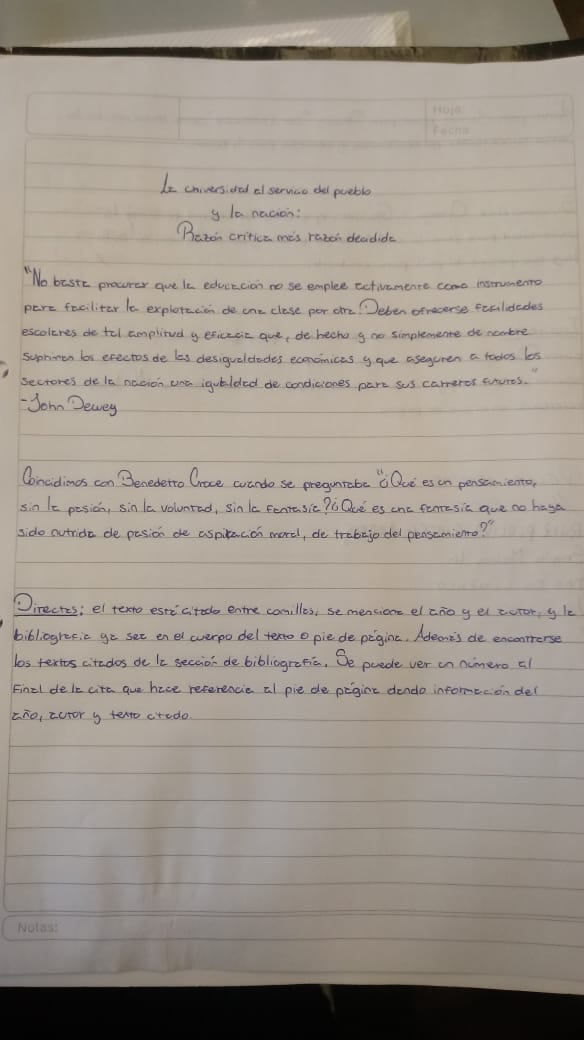 Hoja:
Fecha
La universidad al servicio del pueblo
y la nación:
Razón crítica más razón decidida
"No basta procurar que la educación no se emplee activamente como instrumento
para facilitar la explotación de una clase por otra. Deben ofrecerse facilidades
escolares de tal amplitud y eficacia que, de hecho y no simplemente de nombre
suprimen los efectos de las desigualdades económicas y que aseguren a todos los
sectores de la nación una igualdad de condiciones para sus carreras futuras."
-John Dewey
Coincidimos con Benedetto Croce cuando se preguntaba "¿Qué es un pensamiento,
sin la pasión, sin la voluntad, sin la fantasía? ¿Qué es una fantasía que no haya
sido nutrida de pasión de aspiración moral, de trabajo del pensamiento?"
Directas: el texto está citado entre comillas, se menciona el año y el autor, y la
bibliografía ya sea en el cuerpo del texto o pie de página. Además de encontrarse
los textos citados de la sección de bibliografía. Se puede ver un número al
final de la cita que hace referencia al pie de página dando información del
año, autor y texto citado.
Notas: